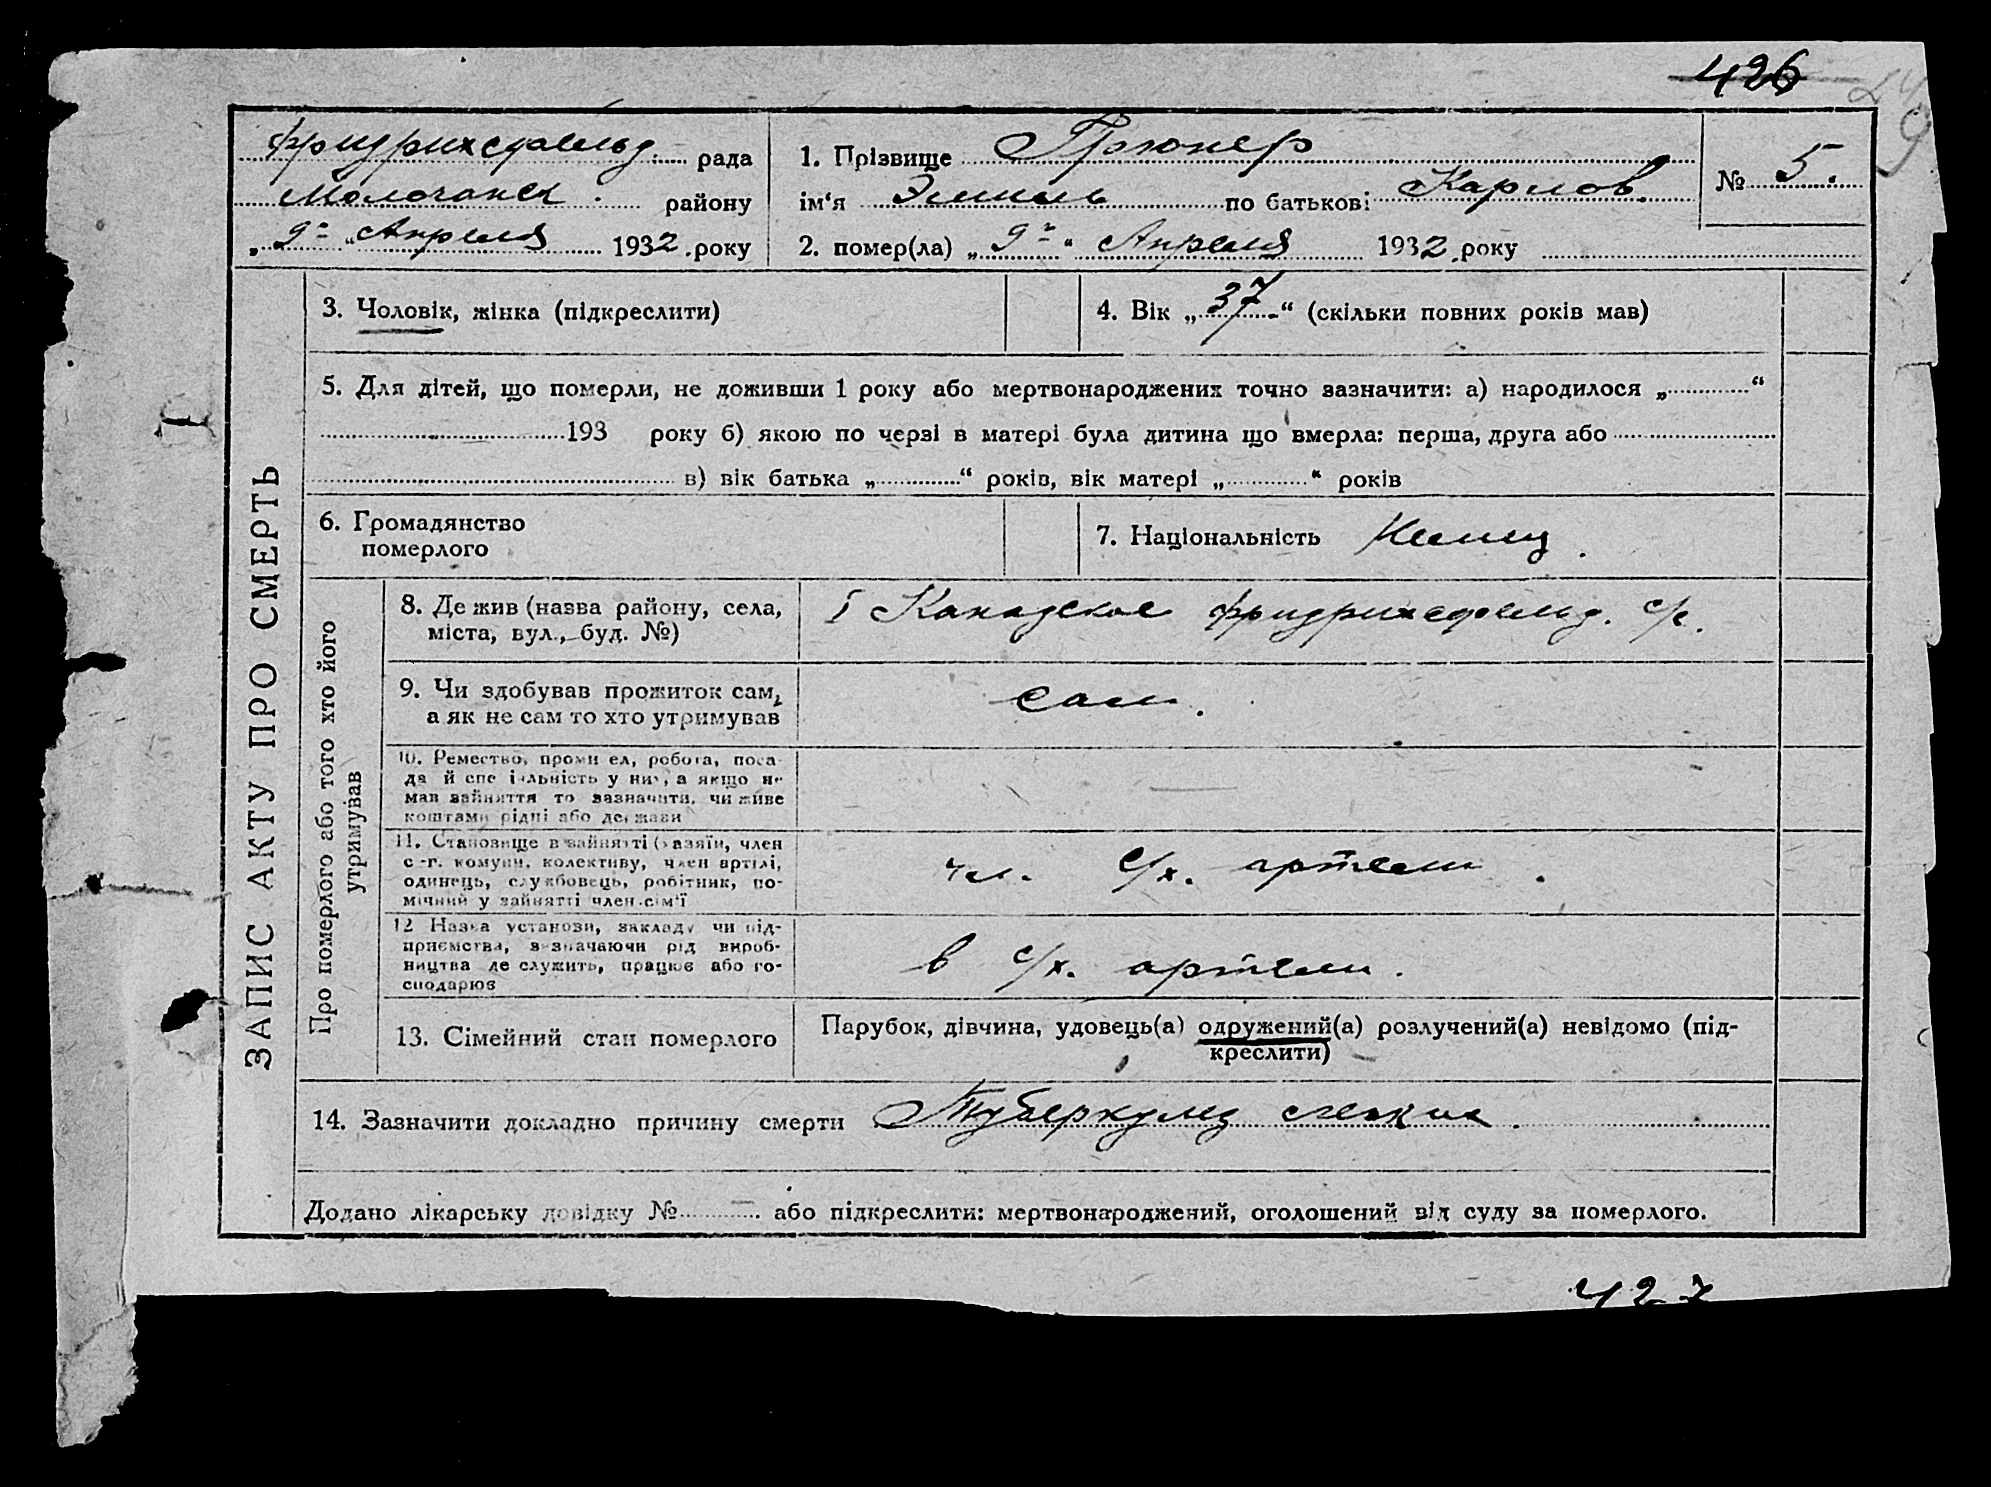 426
Фридрихсфельд. рада
Молочанск. району
„9го“ Апреля 1932. року
1. Прізвище Грюнер
ім‘я Эмиль по батькові Карлов.
№ 5.
2. помер(ла) „9го“ Апреля 1932. року
ЗАПИС АКТУ ПРО СМЕРТЬ
3. Чоловік, жінка (підкреслити)
4. Вік „37“ (скільки повних років мав)
5. Для дітей, що померли, не доживши 1 року або мертвонароджених точно зазначити: а) народилося „ “
193 року б) якою по черзі в матері була дитина що вмерла: перша, друга або
в) вік батька „ “ років, вік матері „ “ років
6. Громадянство
померлого
7. Національність Немец.
Про померлого або того хто його
утримував
8. Де жив (назва району, села,
міста, вул., буд. №)
I Канадское Фридрихсфельд. с/с.
9. Чи здобував прожиток сам,
а як не сам то хто утримував
сам.
10. Ремество, промисел, робота, поса-
да й спеціяльність у них, а якщо не
мав зайняття то зазначити, чи живе
коштами рідні або держави
11. Становище в зайнятті (хазяїн, член
с.-г. комуни, колективу, член артілі,
одинець, службовець, робітник, по-
мічний у зайнятті член сім‘ї
чл. с/х. артели.
12 Назва установи, закладу чи під-
приємства, зазначаючи рід вироб-
ництва де служить, працює або го-
сподарює
в с/х. артели.
13. Сімейний стан померлого
Парубок, дівчина, удовець(а) одружений(а) розлучений(а) невідомо (під-
креслити)
14. Зазначити докладно причину смерти Туберкулез легких.
Додано лікарську довідку № — або підкреслити: мертвонароджений, оголошений від суду за померлого.
427